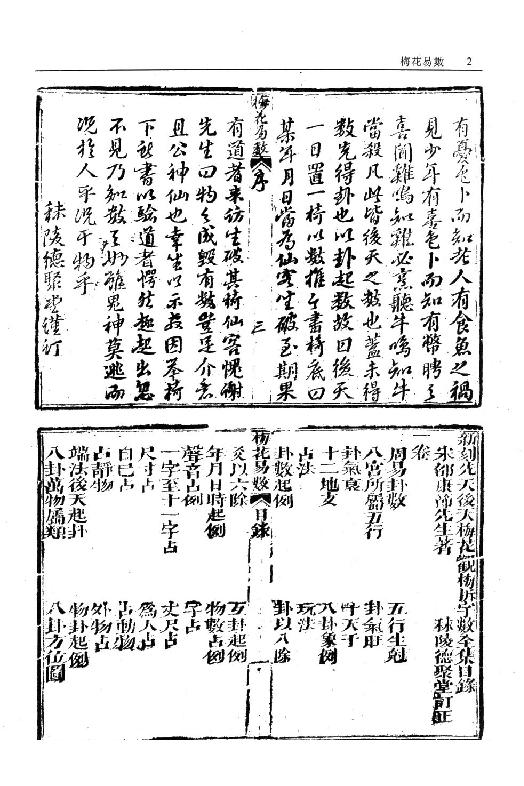 梅花易數 2
有憂色卜而知老人有食魚之禍
見少年有喜色卜而知有幣聘之
喜聞雞鳴知雞必烹聽牛鳴知牛
當殺凡此皆後天之數也蓋未得
數先得卦也以卦起數故曰後天
一日置一椅以數推之書椅底曰
某年月日當為仙客坐破至期果
梅花易數 序 三
有道者來訪坐破其椅仙客愧謝
先生曰物之成毀有數豈足介意
且公神仙也幸坐以示教因舉椅
下所書以驗道者愕然趨起出忽
不見乃知數之妙雖鬼神莫逃而
況於人乎況于物乎
秣陵德聚堂謹訂
新刻先天後天梅花觀梅拆字數全集目錄
宋邵康節先生著 秣陵德聚堂訂正
一卷
周易卦數 五行生剋
八宮所屬五行 卦氣旺
卦氣衰 十天干
十二地支 八卦象例
占法 玩法
卦數起例 卦以八除
梅花易數 目錄
爻以六除 互卦起例
年月日時起例 物數占例
聲音占例 字占
一字至十一字占 丈尺占
尺寸占 為人占
自己占 占動物
占靜物 外物占
端法後天起卦 物卦起例
八卦萬物屬類 八卦方位圖